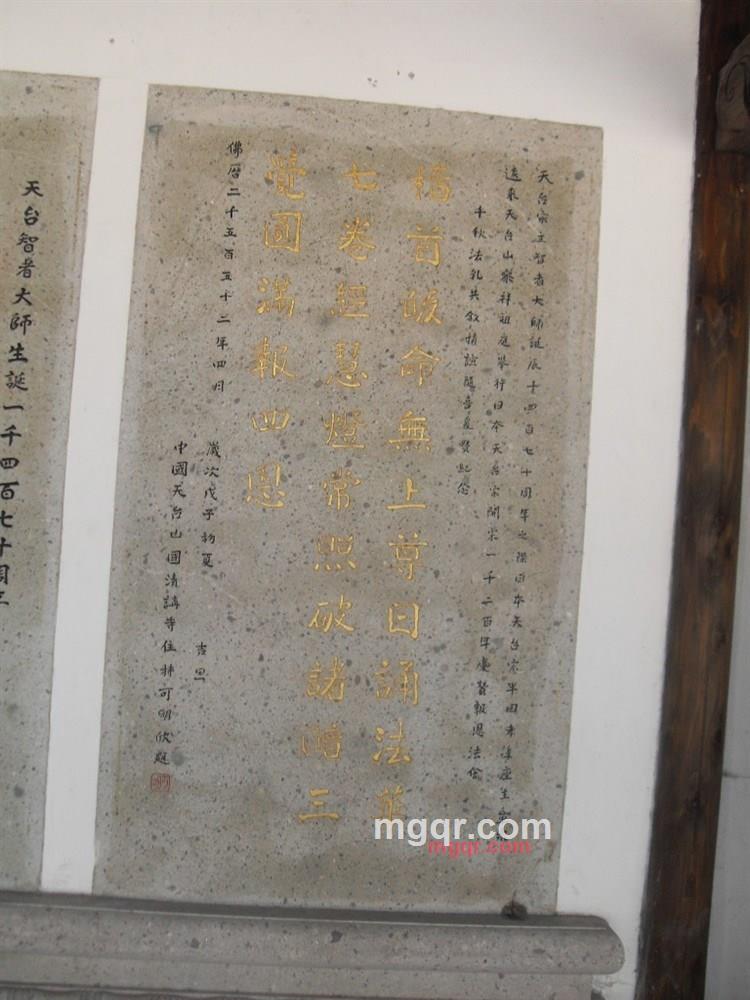 天台宗立智者大師誕辰十四百七十周年之際日本天台宗半田
遠來天台山參拜祖庭舉行日本天台宗開宗一千二百年慶賛報恩法會
千秋法乳共敘情誼隨喜慶賛紀念
稽首皈命無上尊日誦法華
七卷經慧燈常照破諸暗三
覺圓滿報四恩
佛曆二千五百五十二年四月
歲次戊子初夏 吉旦
中國天台山國清講寺住持可明欣題
天台智者大師生誕一千四百七十周年
mgqr.com
mgqr.com